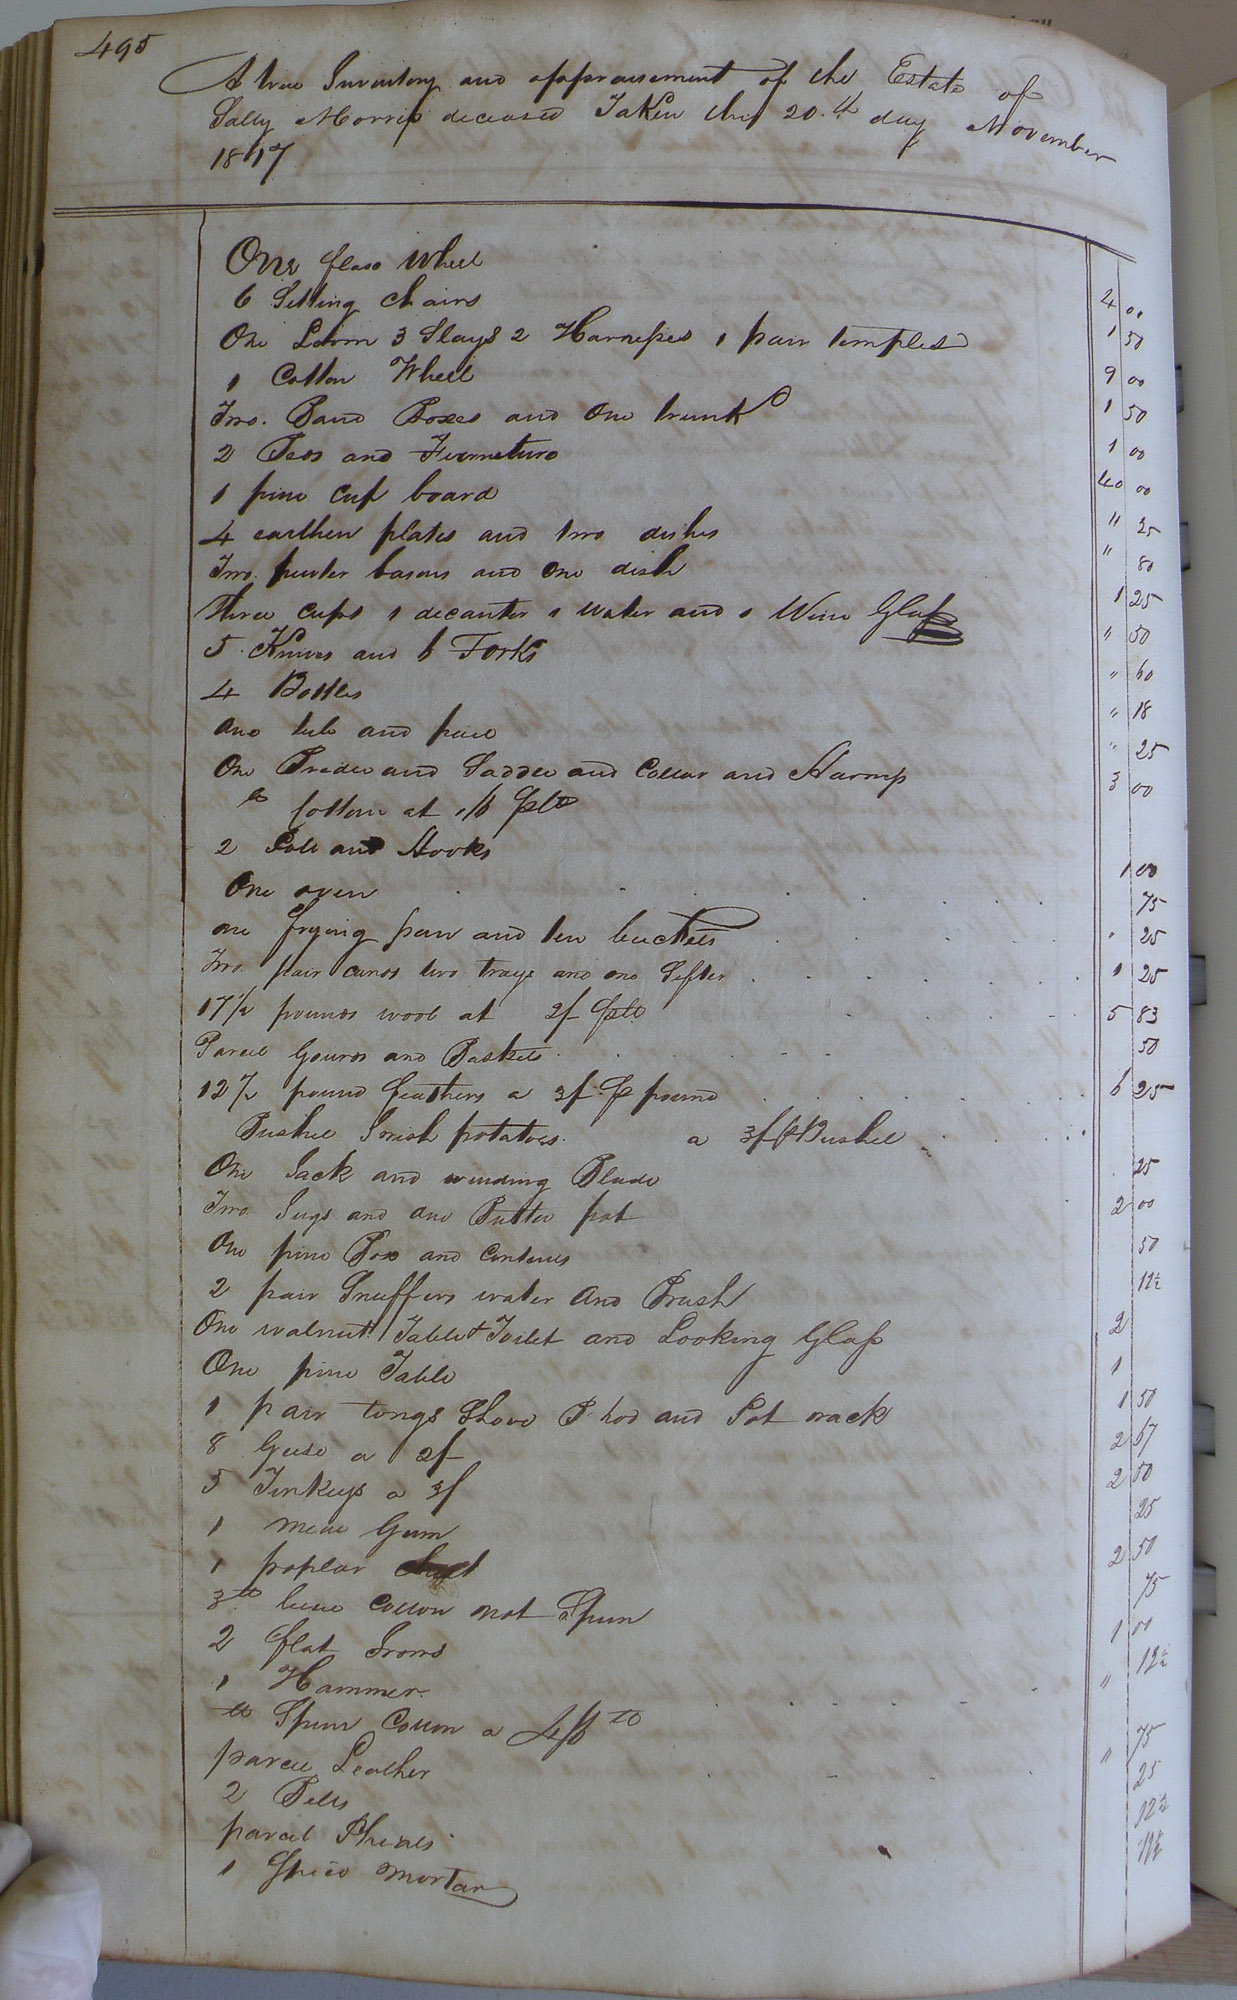 495
A true Inventory and appraisement of the Estate of
Sally Morris deceased Taken this 20.th day November
1817
One flax Wheel 4 00
6 Setting chairs 1 50
One Loom 3 Slays 2 Harnesses 1 pair temples 9 00
1 Cotton Wheel 1 50
Two. Band Boxes and One trunk 1 00
2 Beds and Furneture 40 00
1 pine Cup board " 25
4 earthen plates and two dishes " 80
Two. pewter basons and One dish 1 25
Three cups 1 decanter 1 water and 1 Wine Glass " 50
5 Knives and 6 Forks " 60
4 Bottles " 18
One tub and " 25
One Bridle and Saddle and Collar and Harnss 3 00
lb Cotton at 1/6 ⅌ lb
2 Pots and Hooks 1 00
One oven 75
one frying pan and ten buckets " 25
Two pair cards two trays and one Sifter 1 25
17½ pounds wool at 2/ ⅌ lb 5 83
Parcel Gourds and Baskets 50
12½ pound feathers a 3/ ⅌ pound 6 25
Bushel Irish potatoes a 3/ ⅌ Bushel
One Jack and winding Blade 25
Two Jugs and one Butter pot 2 00
One pine Box and Contents 50
2 pair Snuffers water and Brush 12½
One walnut Table + Toilet and Looking Glass 2
One pine Table 1
1 pair tongs Shove P. hod and Pot rack 1 50
8 Geese a 2/ 2 67
5 Turkeys a 3/ 2 50
1 meal Gum 25
1 poplar Chest 2 50
3 lb blue Cotton not Spun 75
2 flat Irons 1 00
1 Hammer " 12½
lb Spun Cotton a 4/6 lb
parcel Leather " 75
2 Bells 25
parcel Pheials 12½
1 Spice Mortar